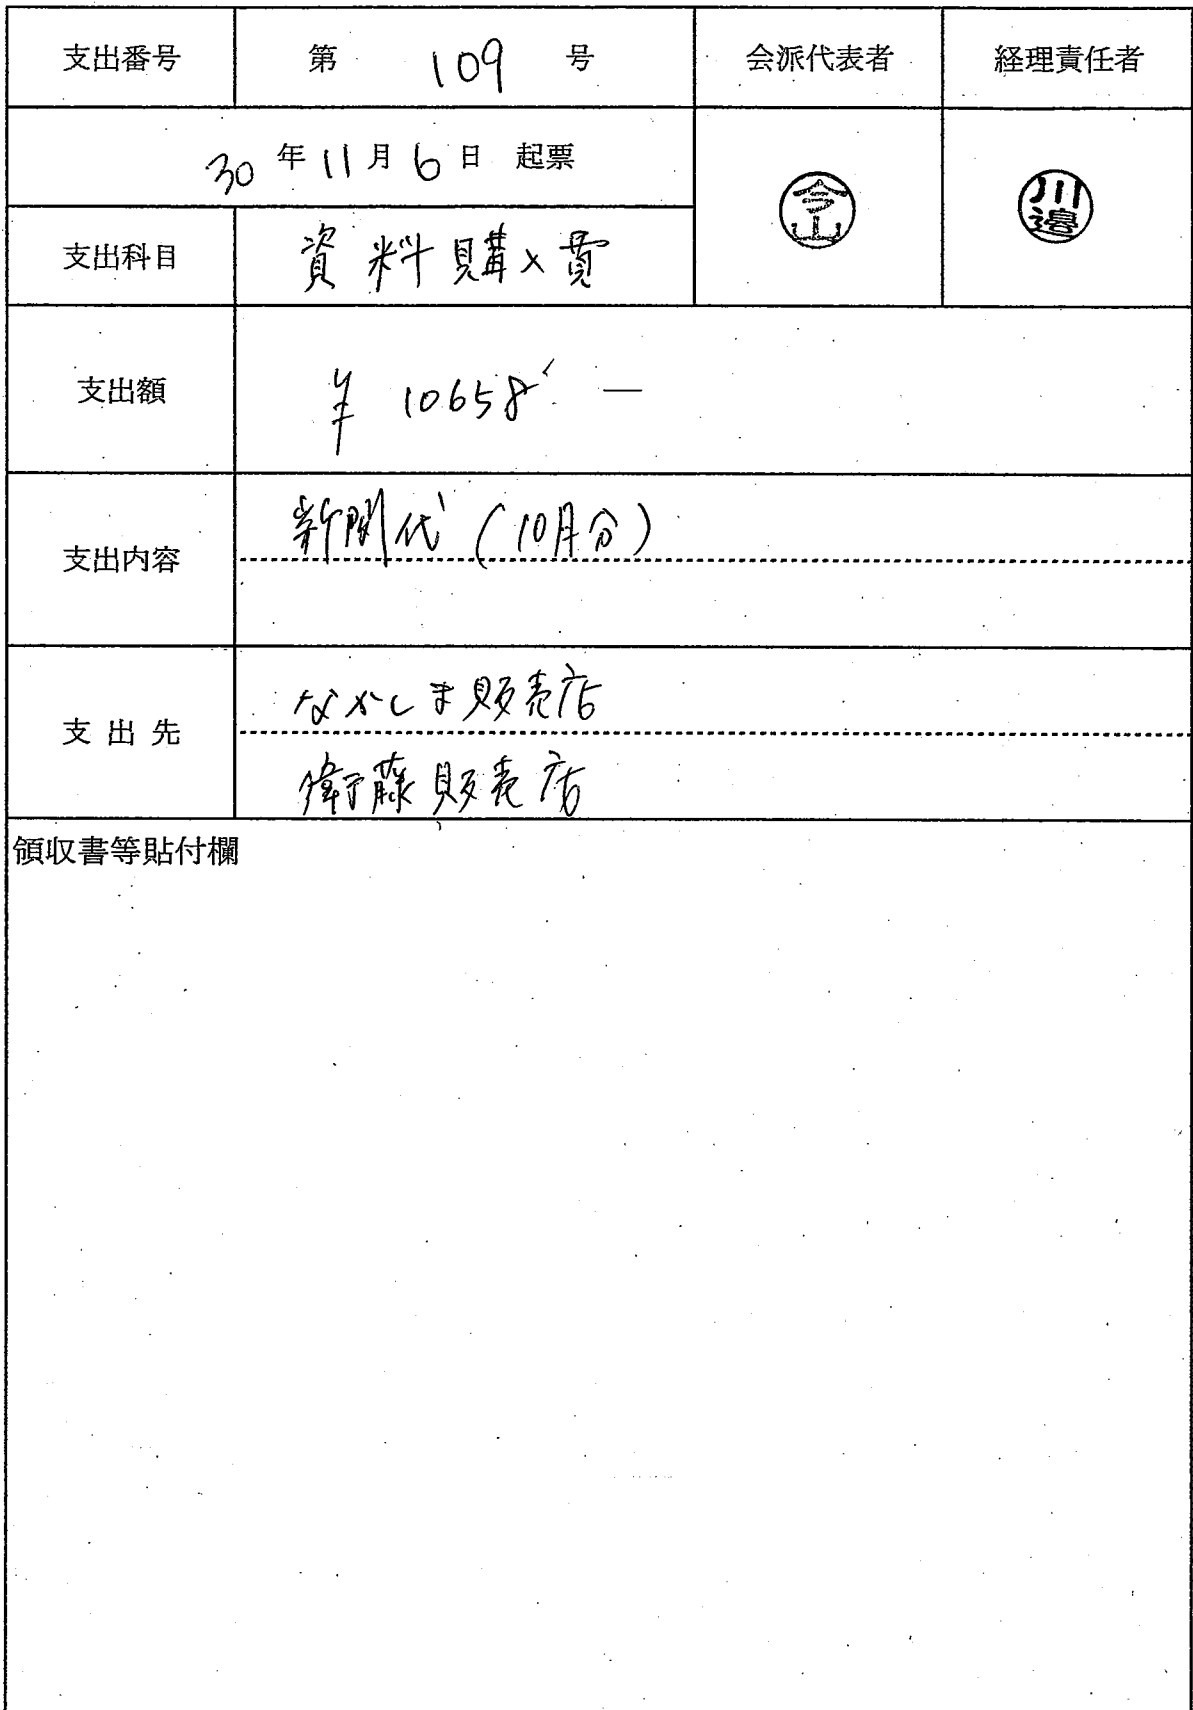 支出番号 第 109 号 会派代表者 経理責任者
30 年 11 月 6 日 起票
今山 川邉
支出科目 資料購入費
支出額 ¥ 10658 —
支出内容 新聞代 (10月分)
なかしま販売店
支出先
衛藤販売店
領収書等貼付欄